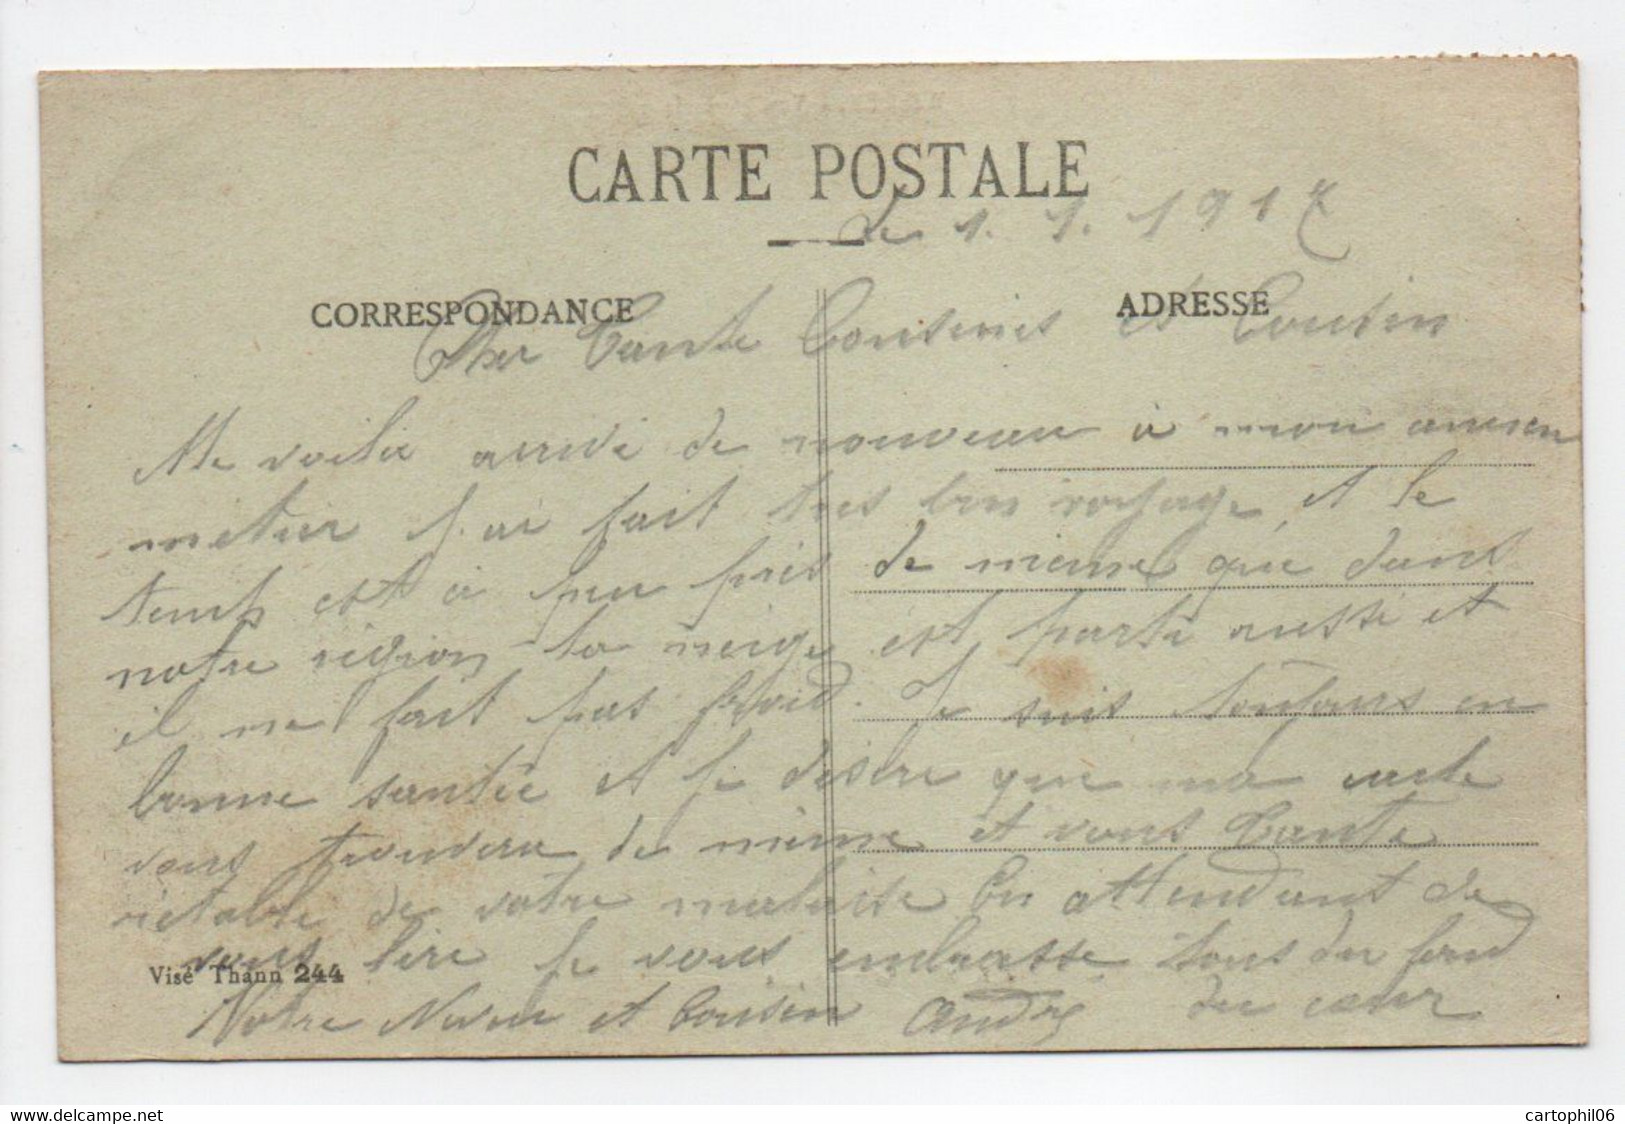 CARTE POSTALE
Le 1. 1. 1917
CORRESPONDANCE
ADRESSE
Cher Tante Cousines et Cousin
Me voila arrivé de nouveau à mon ancien
métier j'ai fait tres bon voyage et le
temp est à peu près de meme que dans
notre région la neige est parti aussi et
il ne fait pas froid. Je suis toujours en
bonne santée et je desire que ma carte
vous trouvera de même et vous Tante
rietablie de votre malaise En attendant de
vous lire je vous embrasse tous du fond
Visé Thann 244
Votre Neveu et Cousin André du cœur
cartophil06